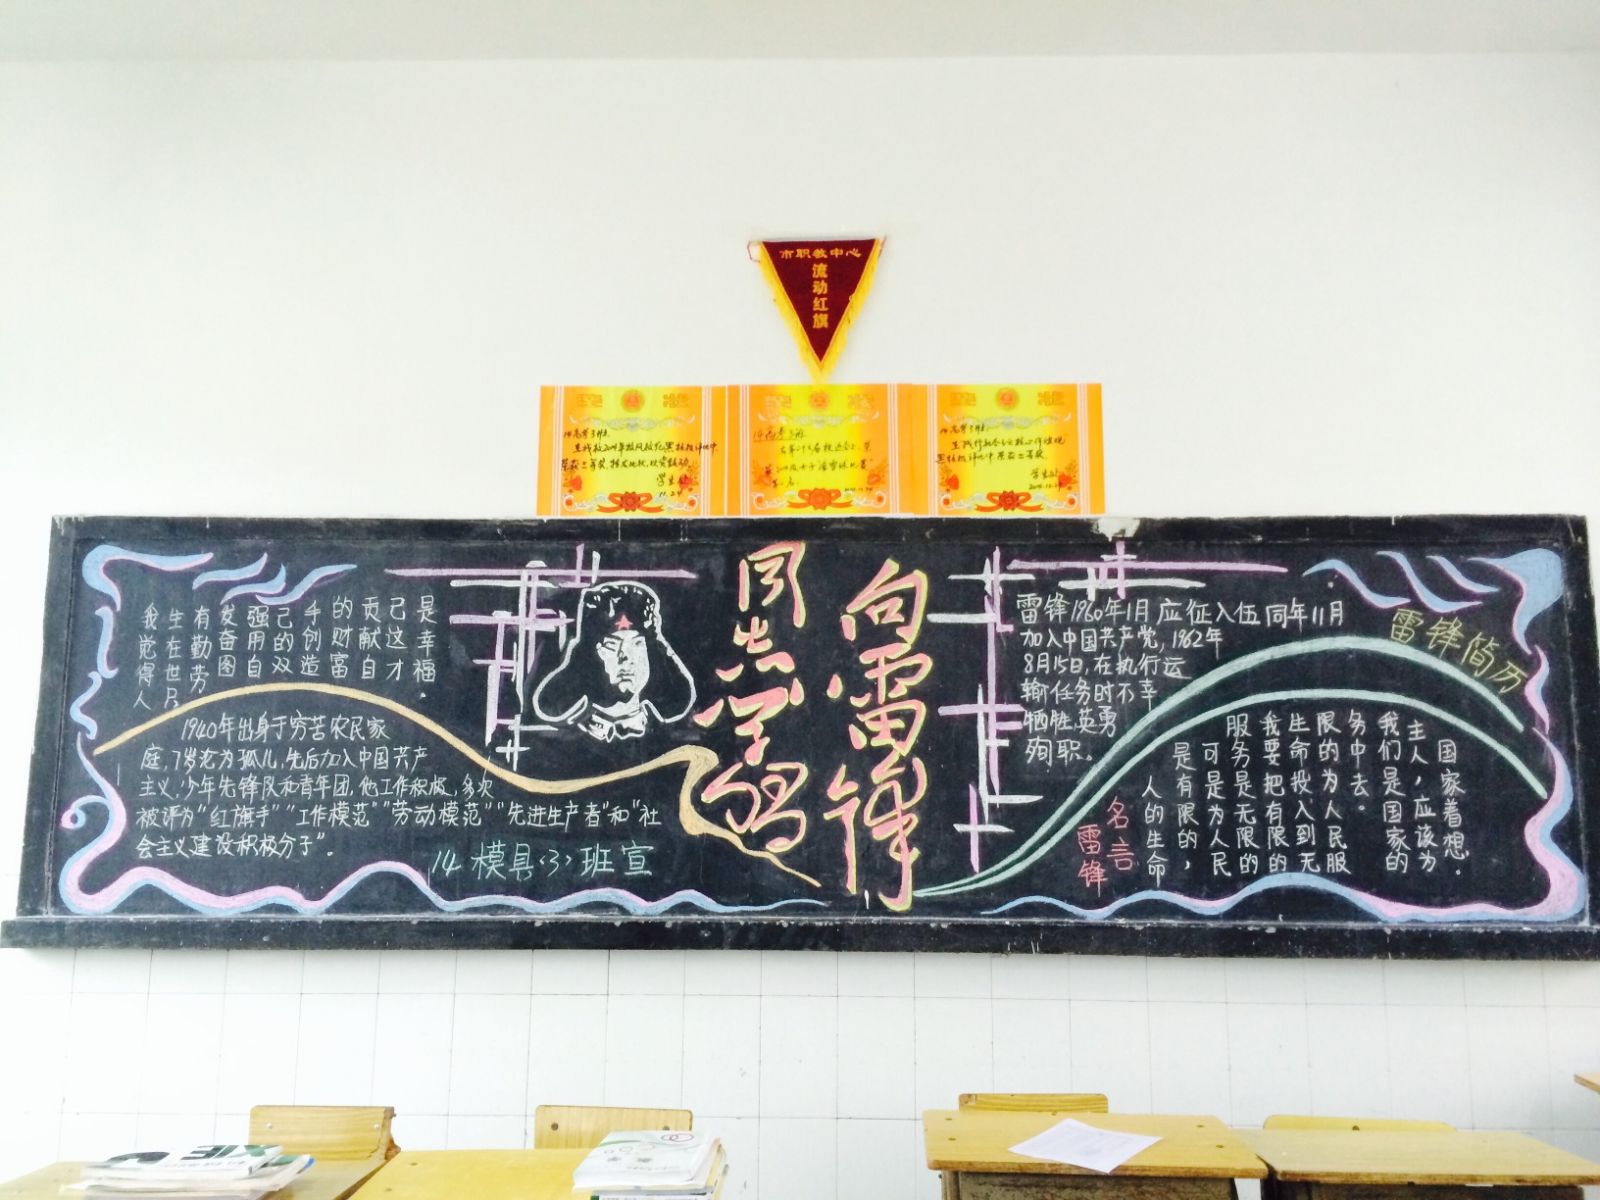 市职教中心
流动红旗
学生处
11.24
黑板报评比中荣获二等奖.
学生处
向雷锋
同志学习
我觉得人
生在世只
有勤劳
发奋图
强用自
己的双
手创造
的财富
贡献自
己这才
是幸福。
1940年出身于穷苦农民家
庭，7岁沦为孤儿，先后加入中国共产
主义，少年先锋队和青年团，他工作积极，多次
被评为“红旗手”“工作模范”“劳动模范”“先进生产者”和“社
会主义建设积极分子”。
14模具(3)班宣
雷锋简历
雷锋1960年1月应征入伍同年11月
加入中国共产党，1962年
8月15日，在执行运
输任务时不幸
牺牲，英勇
殉职。
雷锋
名言
人的生命
是有限的，
可是为人民
服务是无限的
我要把有限的
生命投入到无
限的为人民服
务中去。
我们是国家的
主人，应该为
国家着想.